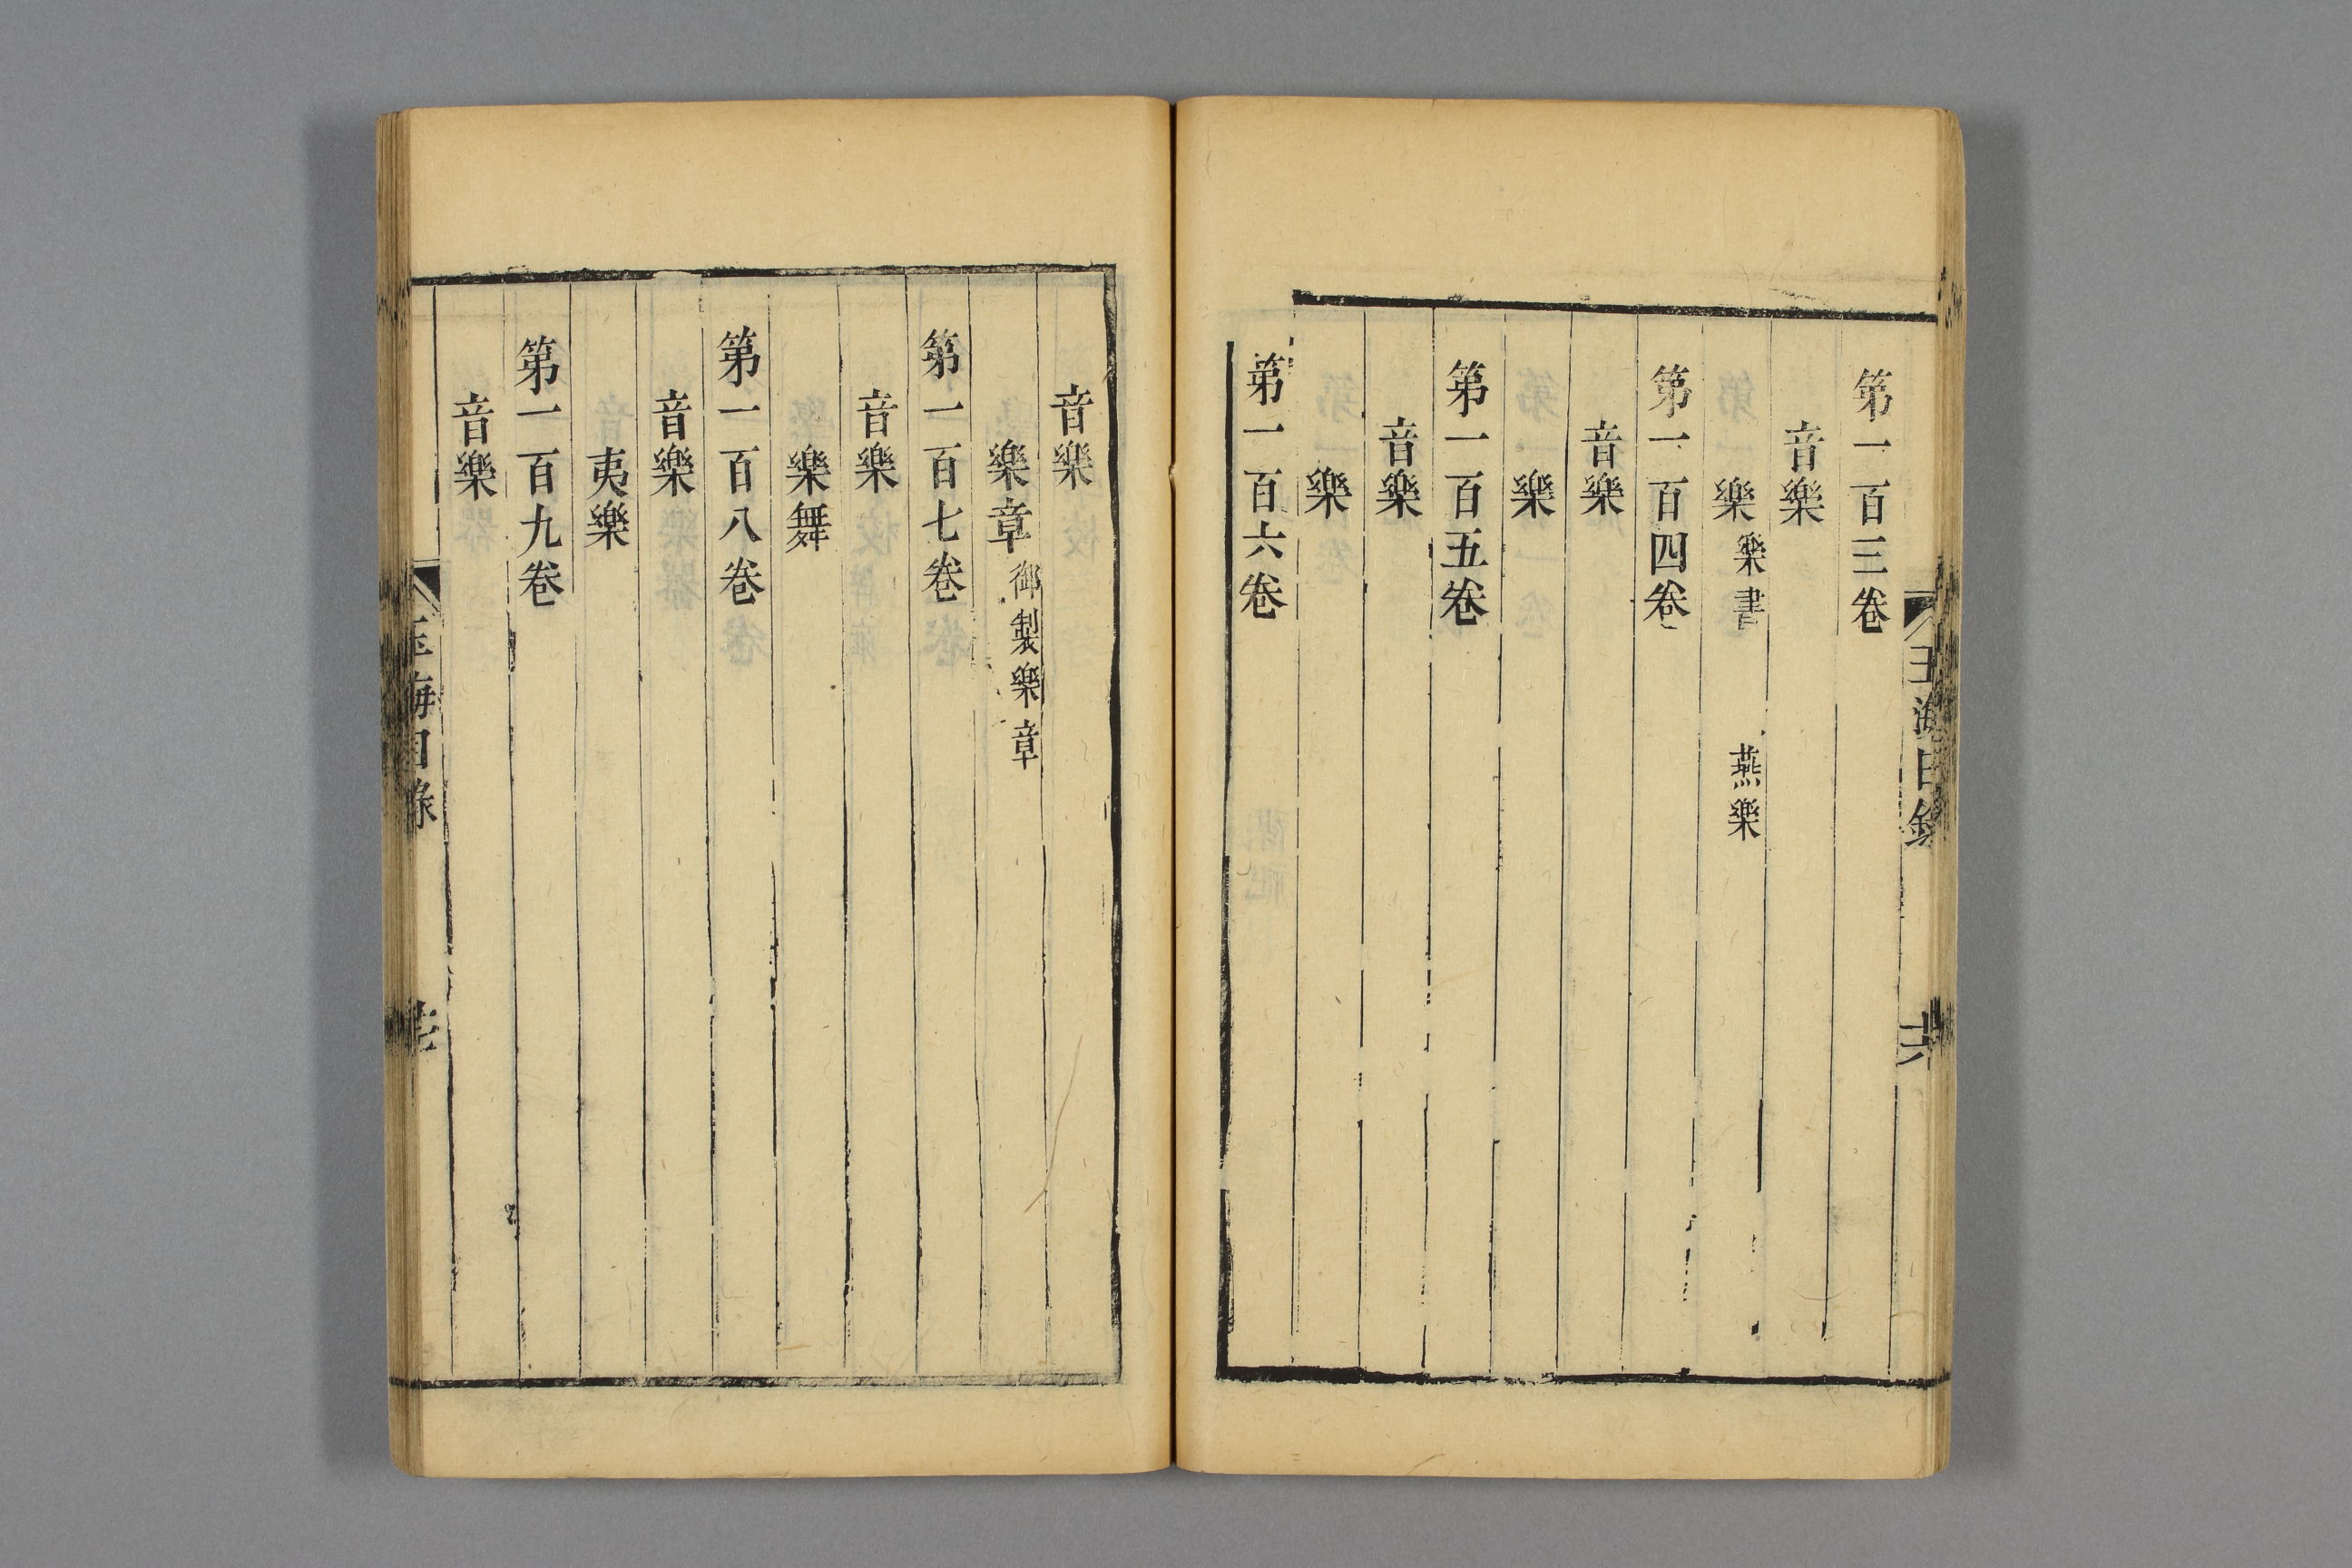 第一百三卷
音樂
樂 樂書 燕樂
第一百四卷
音樂
樂
第一百五卷
音樂
樂
第一百六卷
音樂
樂章 御製樂章
第一百七卷
音樂
樂舞
第一百八卷
音樂
夷樂
第一百九卷
音樂
玉海目錄